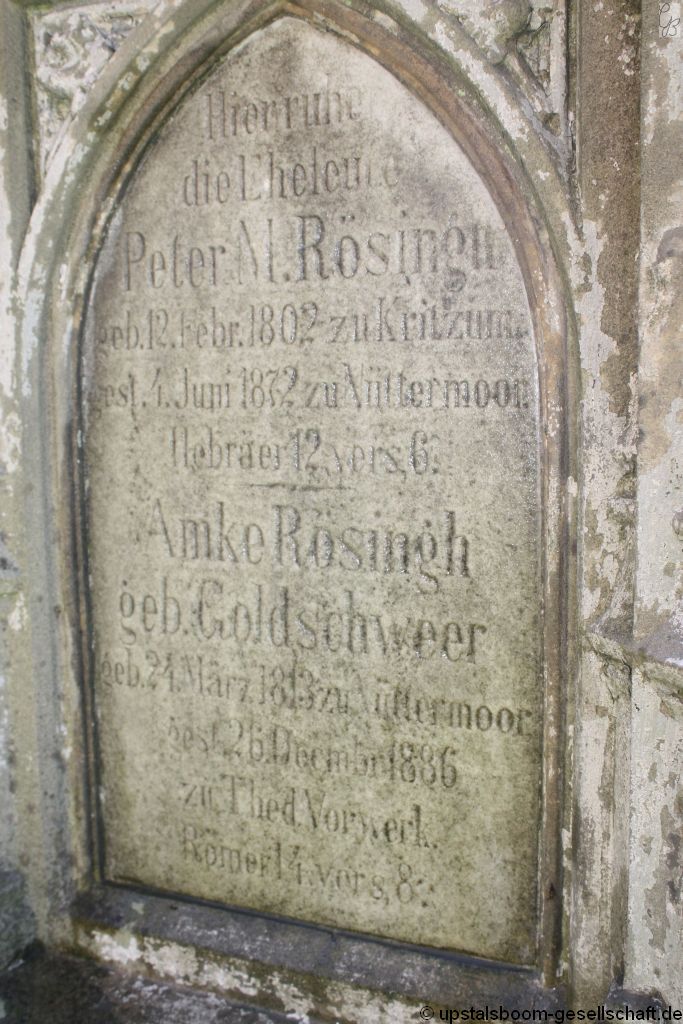 Hier ruhen
die Eheleute
Peter M. Rösingh
geb. 12. Febr. 1802 zu Kritzum.
gest. 4. Juni 1872 zu Nüttermoor.
Hebräer 12, vers, 6.
Amke Rösingh
geb. Goldschweer
geb. 24. März 1813 zu Nüttermoor
gest. 26. Decmbr. 1886
zu Thed. Vorwerk.
Römer 14. vers, 8.
© upstalsboom-gesellschaft.de